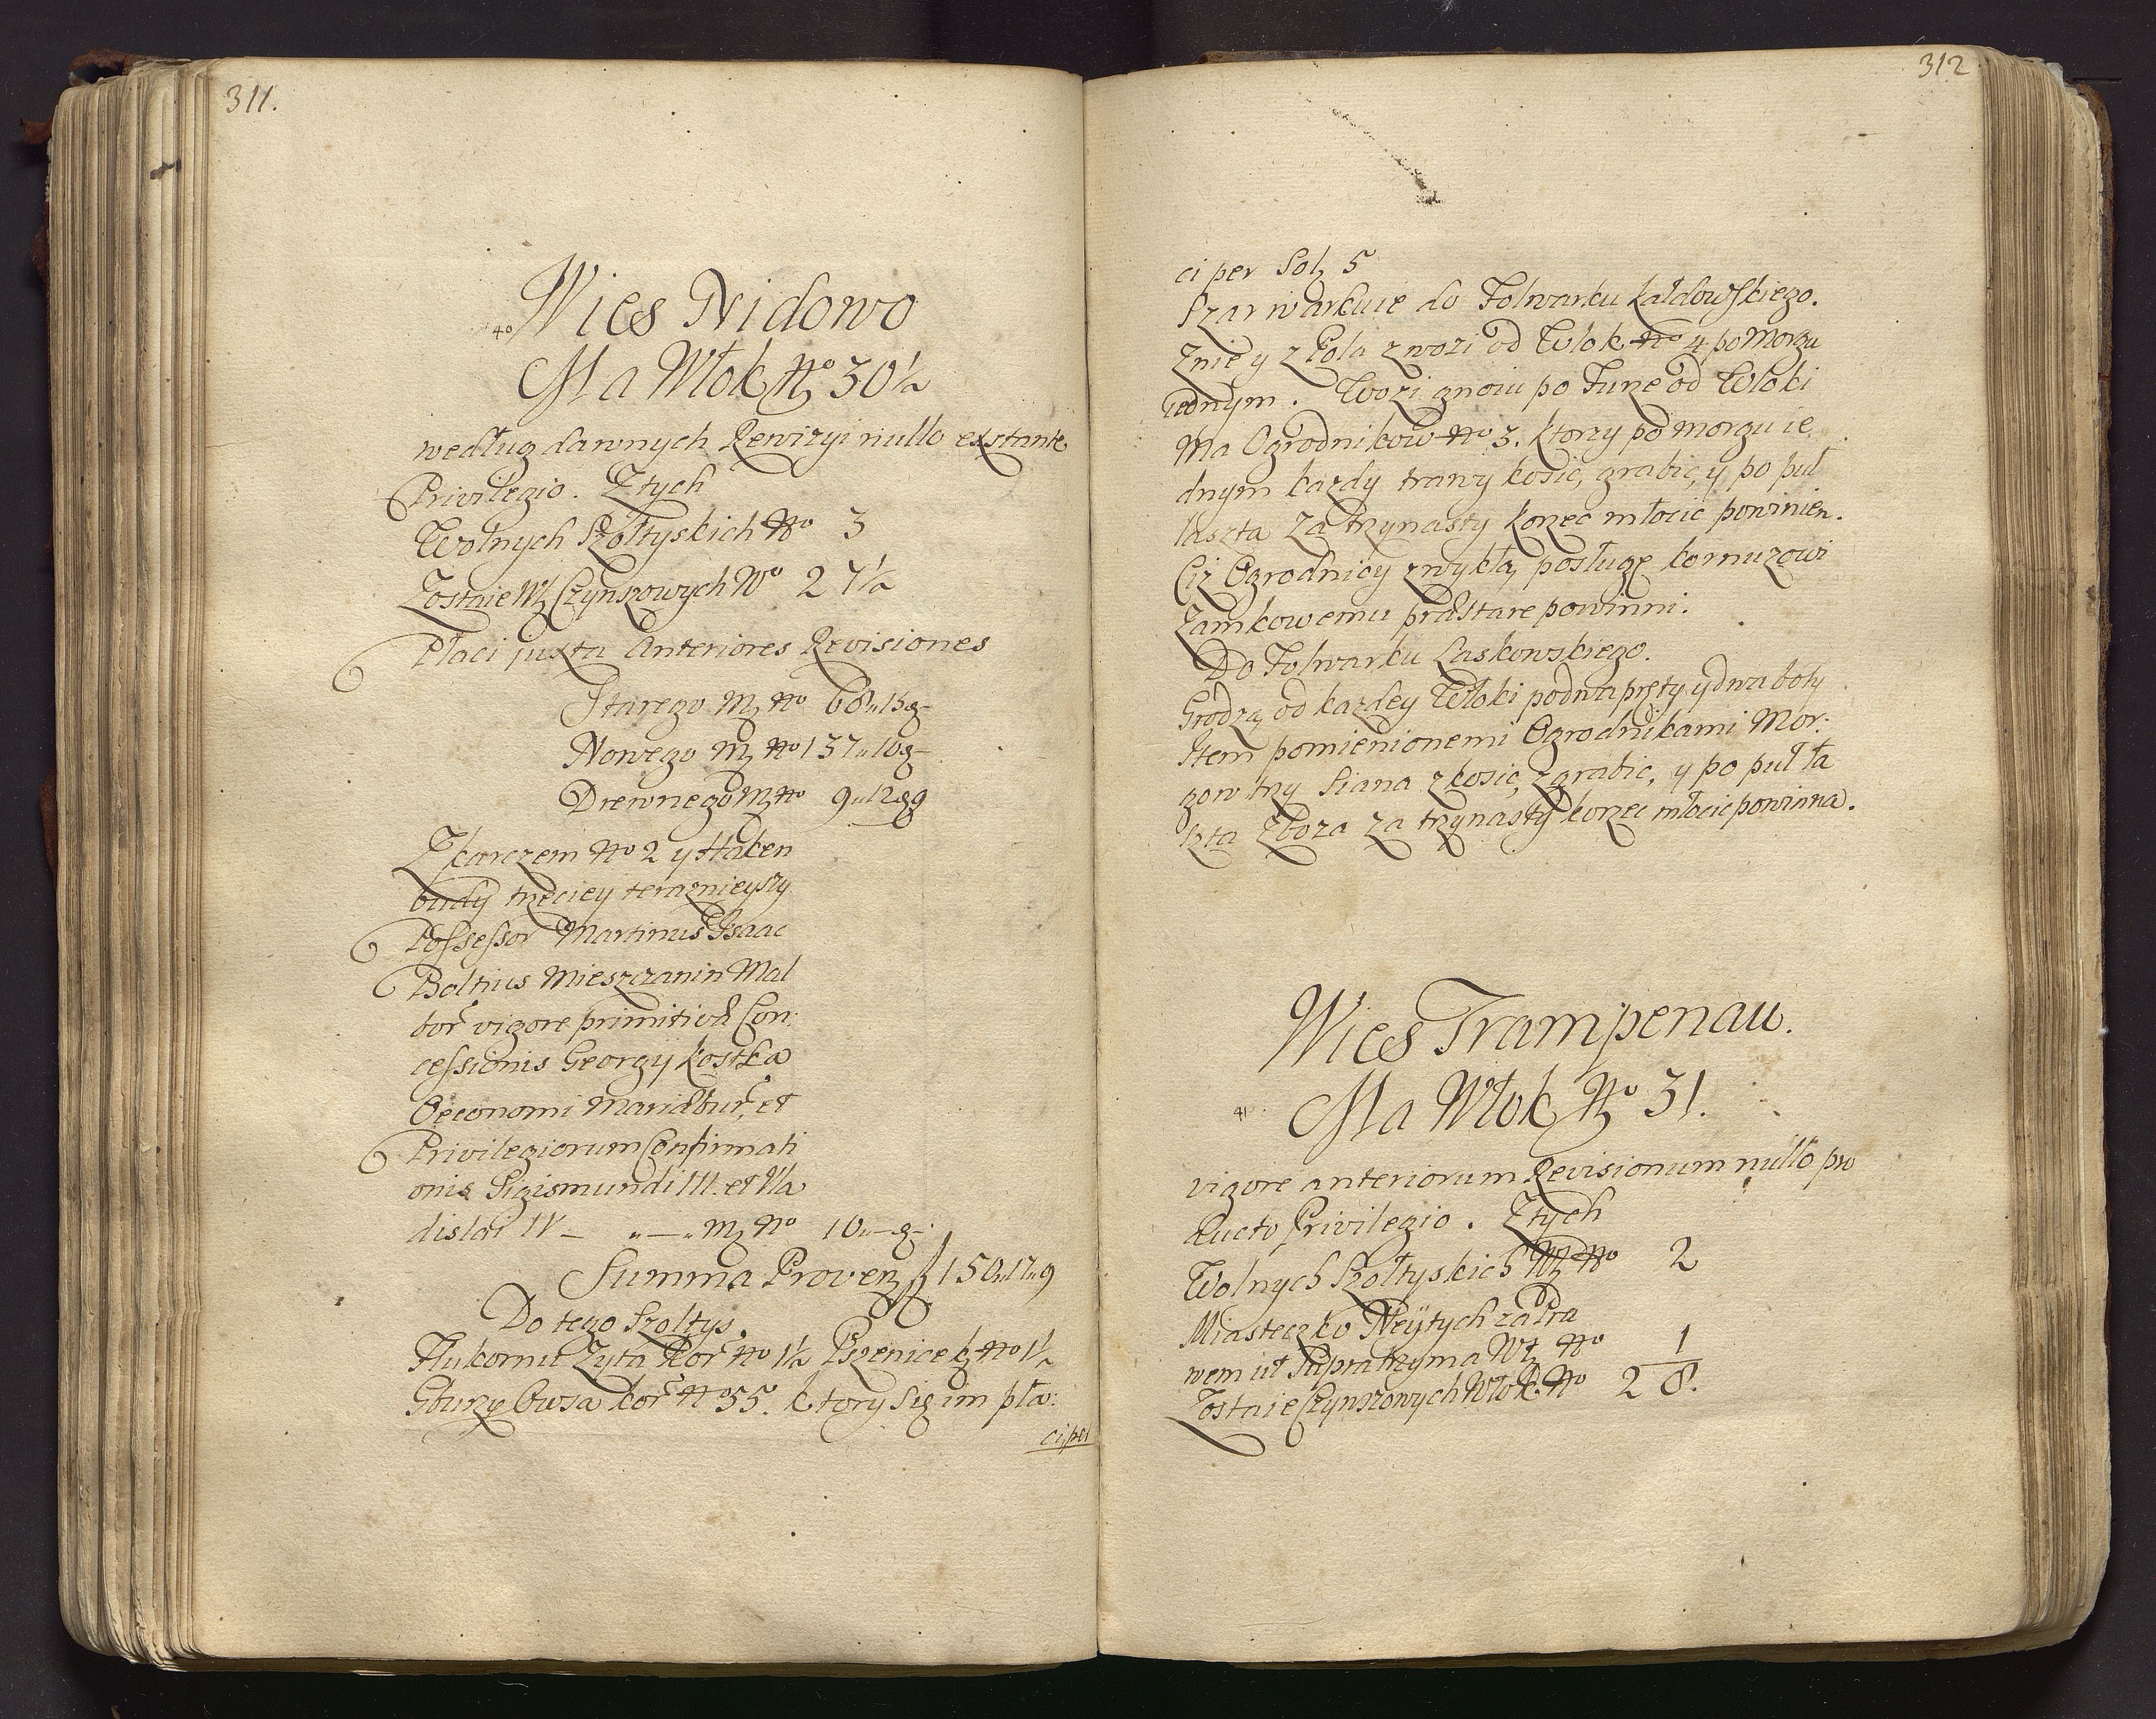 311.
40 Wies Nidowo
Ma Włok No 30½
według dawnych Rewizyi nullo exstante
Privilegio. Z tych
Wolnych Szołtyskich No 3
Zostaie Wł Czynszowych No 27½
Płaci juxta Anteriores Revisiones
Starego M No 68„15g–
Nowego M No 137„10g–
Drewnego M No 9„12g9
Z karczem No 2 y Haken
budy trzeciey teraznieyszy
Possessor Martinus Isaac
Boltius Mieszczanin Mal
bor vigore primitivæ Con:
cessionis Georgij Kostka
Oeconomi Mariæbur, et
Privilegiorum Confirmati
onis Sigismundi III. et Vla
dislai IV – „—„ M No 10„—g–
Summa Proven fl 150„17„9
Do tego Szołtys,
Hukornu Zyta Kor No 1½ Pszenice k No 1½
Gburzy Owsa kor No 55. ktory Się im pła:
ci per
312
ci per Sol 5
Szarwarkuie do Folwarku Kałdowskiego.
Znie y z Pola zwozi od Włok No 4 po Morgu
iednym. Wozi gnoiu po Furze od Włoki
Ma Ogrodnikow No 3. ktorzy po morgu ie
dnym kazdy trawy kosic, grabic, y po puł
łaszta za trzynasty korzec młocic powinien.
Ciz Ogrodnicy zwykłą posługę kornuzowi
Zamkowemu præstare powinni.
Do Folwarku Laskowskiego.
Grodzą od kazdey Włoki po dwa pręty y dwa boty
Item pomienionemi Ogrodnikami Mor:
gow trzy Siana zkosic, zgrabic, y po puł ła
szta Zboza za trzynasty korzec młocic powinna.
Wies Trampenau.
41. Ma Włok No 31.
vigore anteriorum Revisionum nullo pro
ducto Privilegio. Z tych
Wolnych Szołtyskich Wł No 2
Miasteczko Neÿtych za Pra
wem ut Supra trzyma Wł No 1
Zostaie Czynszowych Włok No 28.